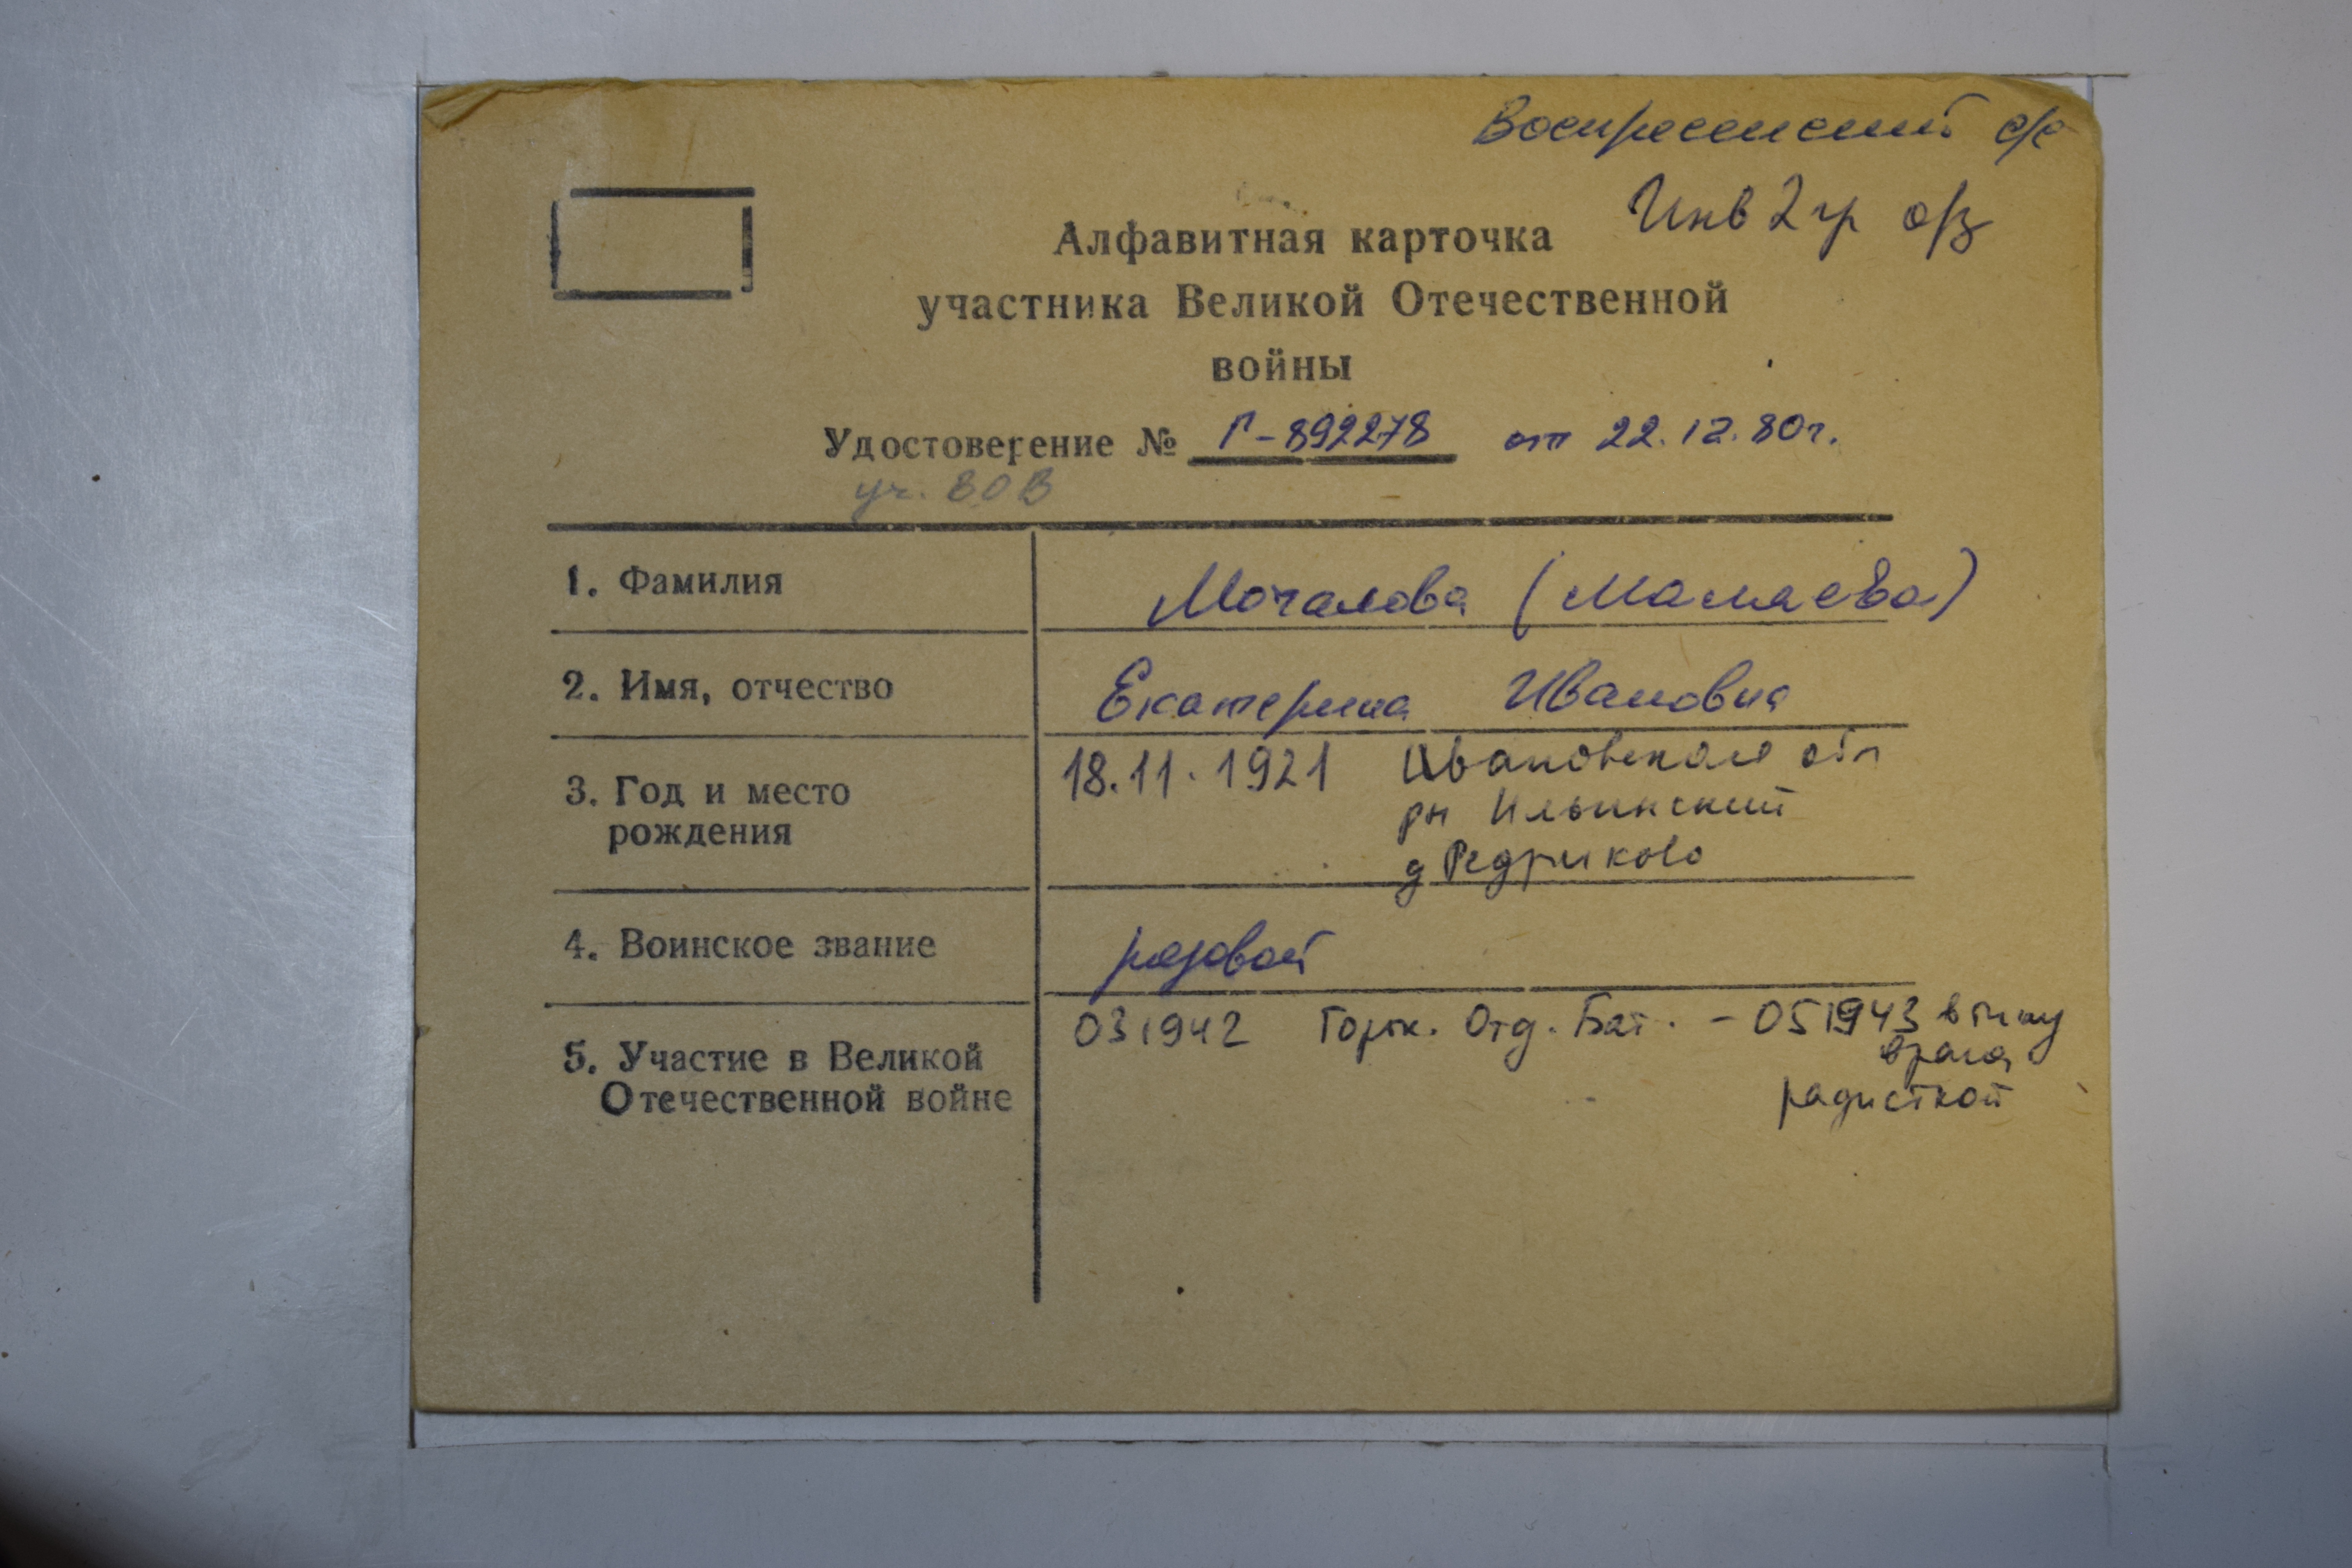 Воскресенский с/с
Инв 2 гр о/з
Алфавитная карточка
участника Великой Отечественной
войны
Удостоверение № Г-892278 от 22.12.80г.
уч. ВОВ
1. Фамилия Мочалова (Мамаева)
2. Имя, отчество Екатерина Ивановна
3. Год и место рождения 18.11.1921 Ивановская обл
рн Ильинский
д Редриково
4. Воинское звание рядовой
5. Участие в Великой Отечественной войне 031942 Горьк. Отд. Бат. - 051943 в тылу
врага
радисткой